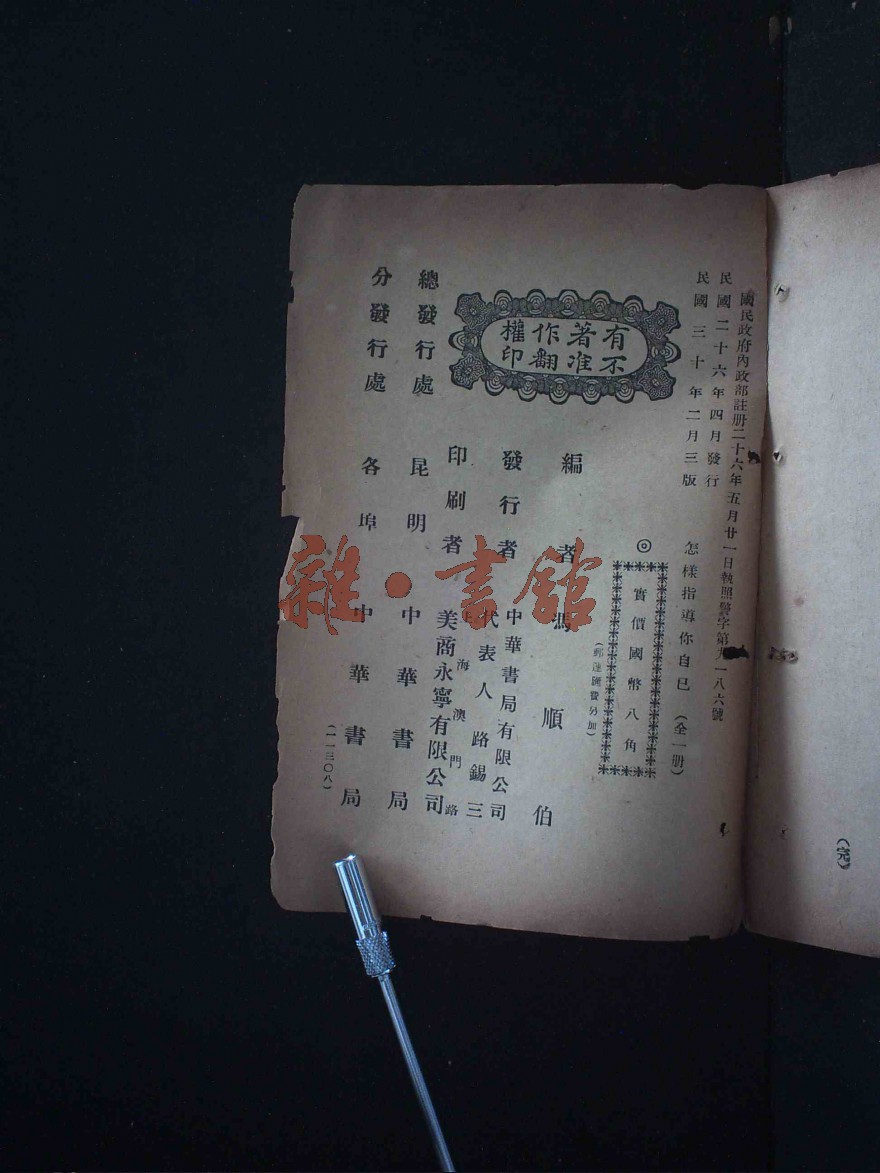 國民政府內政部註冊二十六年五月廿一日執照警字第九一八六號
民國二十六年四月發行
民國三十年二月三版
怎樣指導你自己（全一冊）
◎
實價國幣八角
（郵運匯費另加）
有著作權
不准翻印
編者 馮順伯
發行者 中華書局有限公司
代表人路錫三
印刷者 上海澳門路
美商永寧有限公司
總發行處 昆明 中華書局
分發行處 各埠 中華書局
（一一三〇八）
（完）
雜·書館